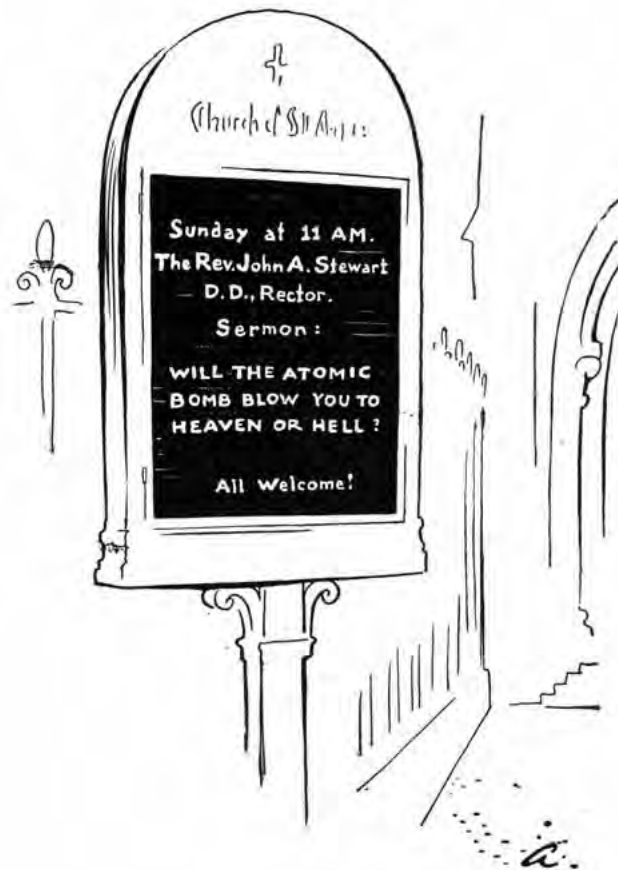 Church of St
Sunday at 11 AM.
The Rev. John A. Stewart
D.D., Rector.
Sermon:
WILL THE ATOMIC
BOMB BLOW YOU TO
HEAVEN OR HELL?
All Welcome!
a